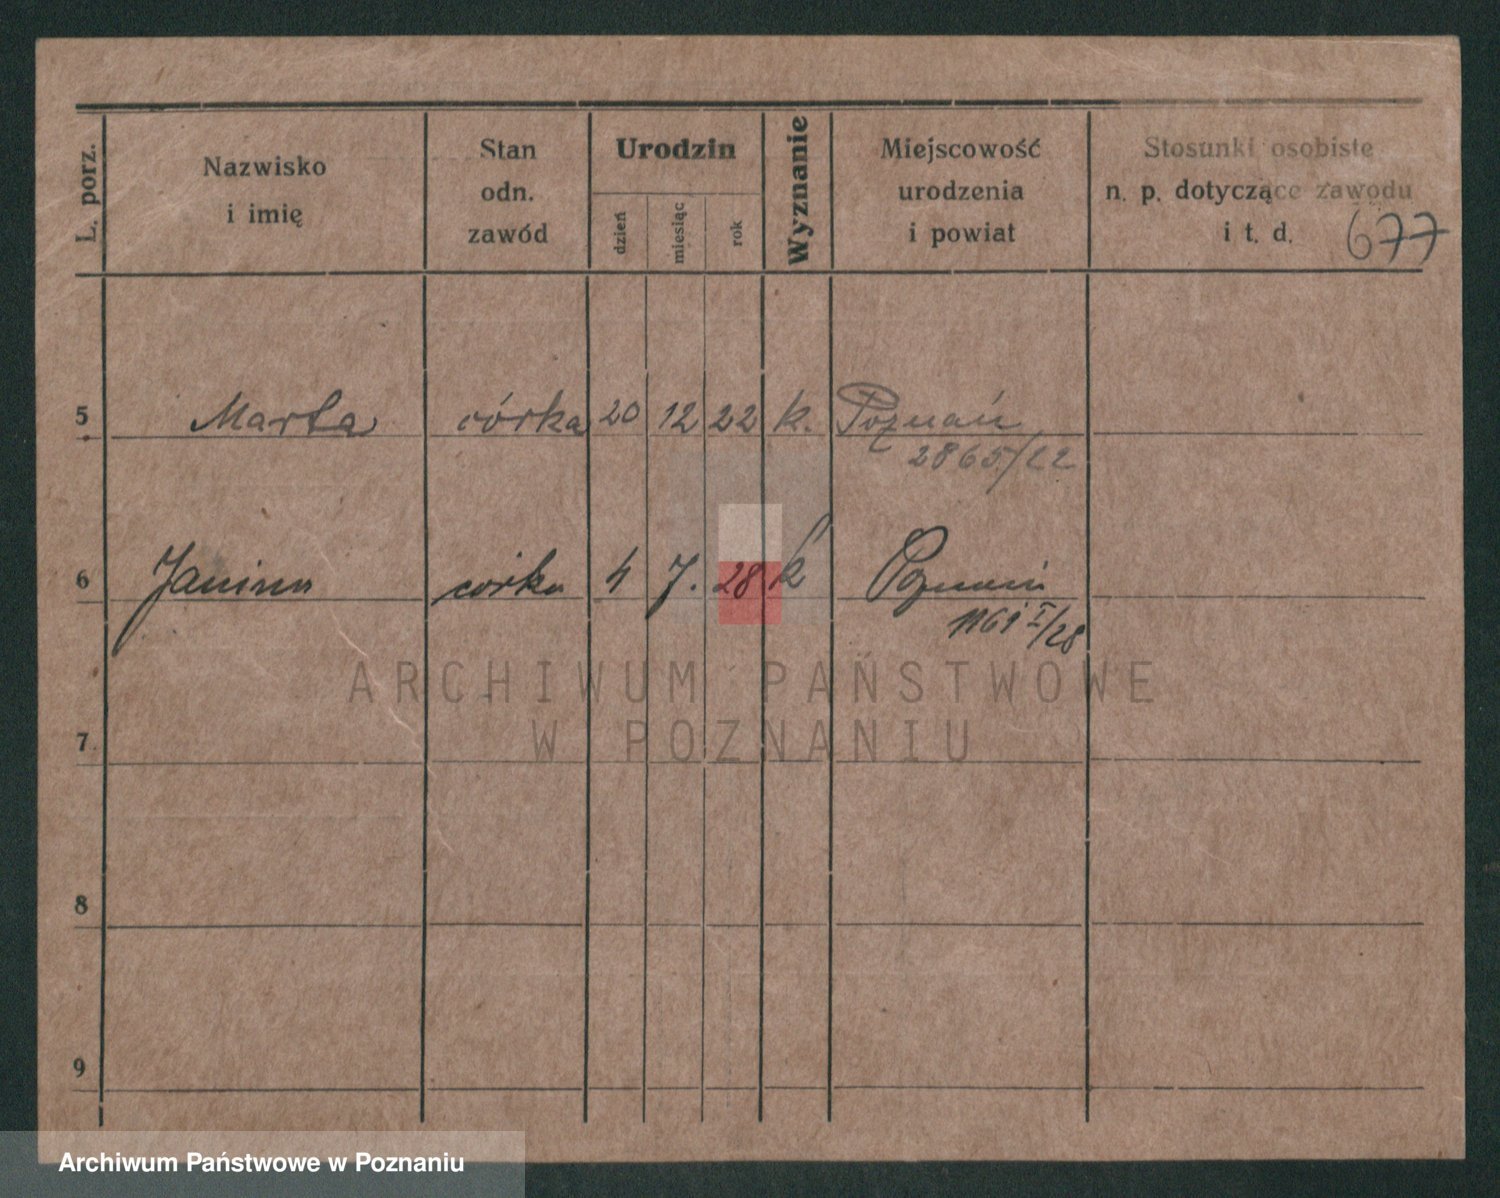 L. porz.
Nazwisko
i imię
Stan
odn.
zawód
Urodzin
dzień
miesiąc
rok
Wyznanie
Miejscowość
urodzenia
i powiat
Stosunki osobiste
n. p. dotyczące zawodu
i t. d.
677
5 Marta córka 20 12 22 k. Poznań
2865/22
6 Janina córka 4 7. 28 k Poznań
1161 I/28
ARCHIWUM PAŃSTWOWE
W POZNANIU
7
8
9
Archiwum Państwowe w Poznaniu